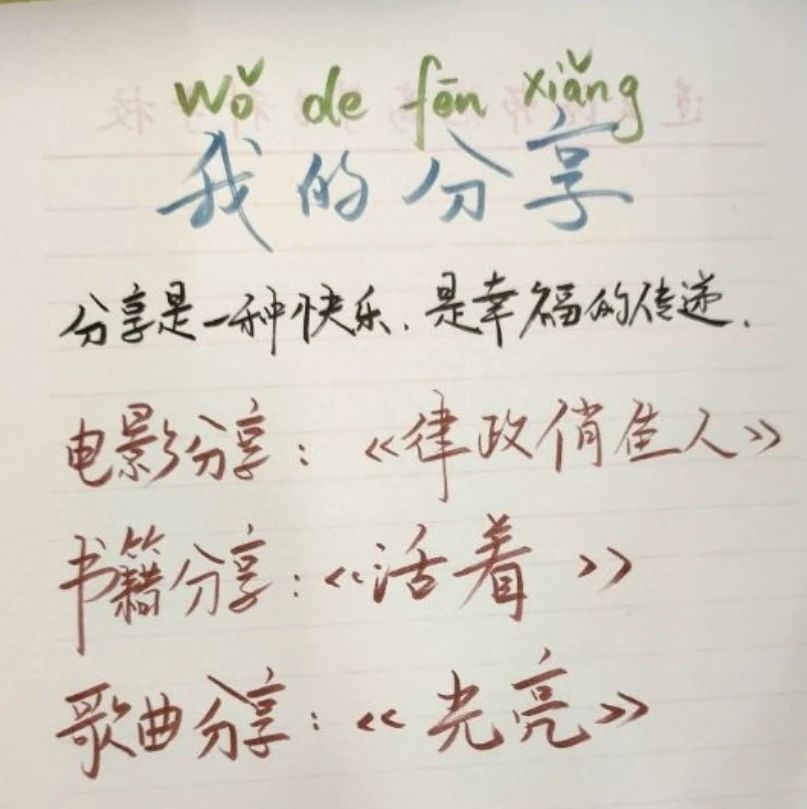 wǒ de fēn xiǎng
我的分享
分享是一种快乐.是幸福的传递.
电影分享:《律政俏佳人》
书籍分享:《活着》
歌曲分享:《光亮》